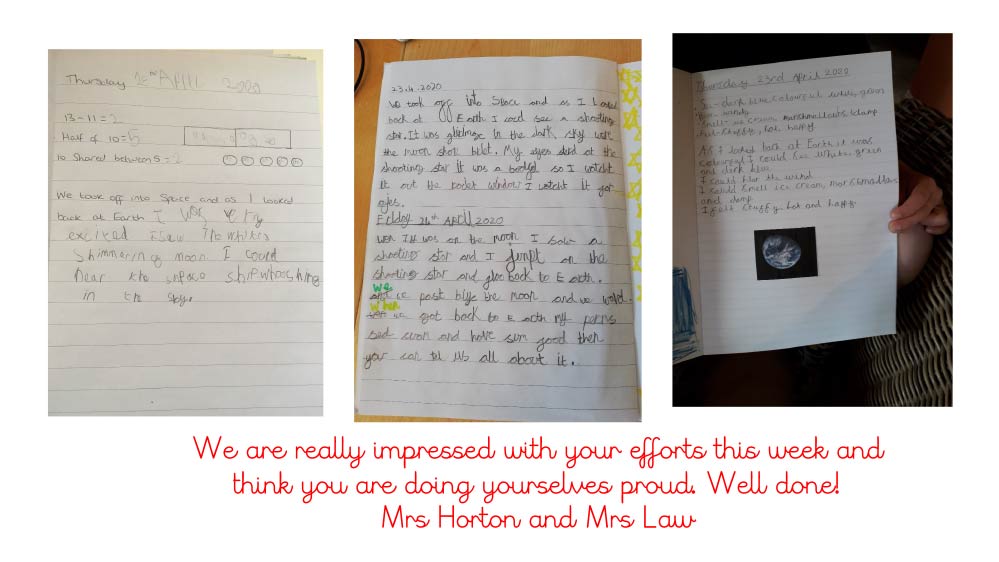 Thursday APRIL 2020
13-11=2
Half of 10=5
10 Shared between 5=2
We took off into Space and as I looked
back at Earth I was very
excited I saw the whites
Shimmering moon I could
hear the space
in the sky.
23.4.2020
We took off into Space and as I looked
back at Earth I cood see a shooting
star. It was in the dark sky were
the moon shon My eyes at the
shooting star it was a so I
it out the window I it for
Friday 24th April 2020
Wen I was on the moon I Saw a
shooting star and I jumpt on the
shooting star and back to Earth.
We
past the moon and we
when
we got back to Earth my
and have sum good then
you can tel us all about it.
Thursday 23rd April 2020
See - dark blue, colourful white, green
Smell - ice cream, marshmallows,
Felt - stuffy, hot, happy
As I looked back at Earth it was
colourful I could see White, green
and dark blue.
I could the wind
I could Smell ice cream, marshmallows
and damp
I felt stuffy, hot and happy
We are really impressed with your efforts this week and
think you are doing yourselves proud. Well done!
Mrs Horton and Mrs Law